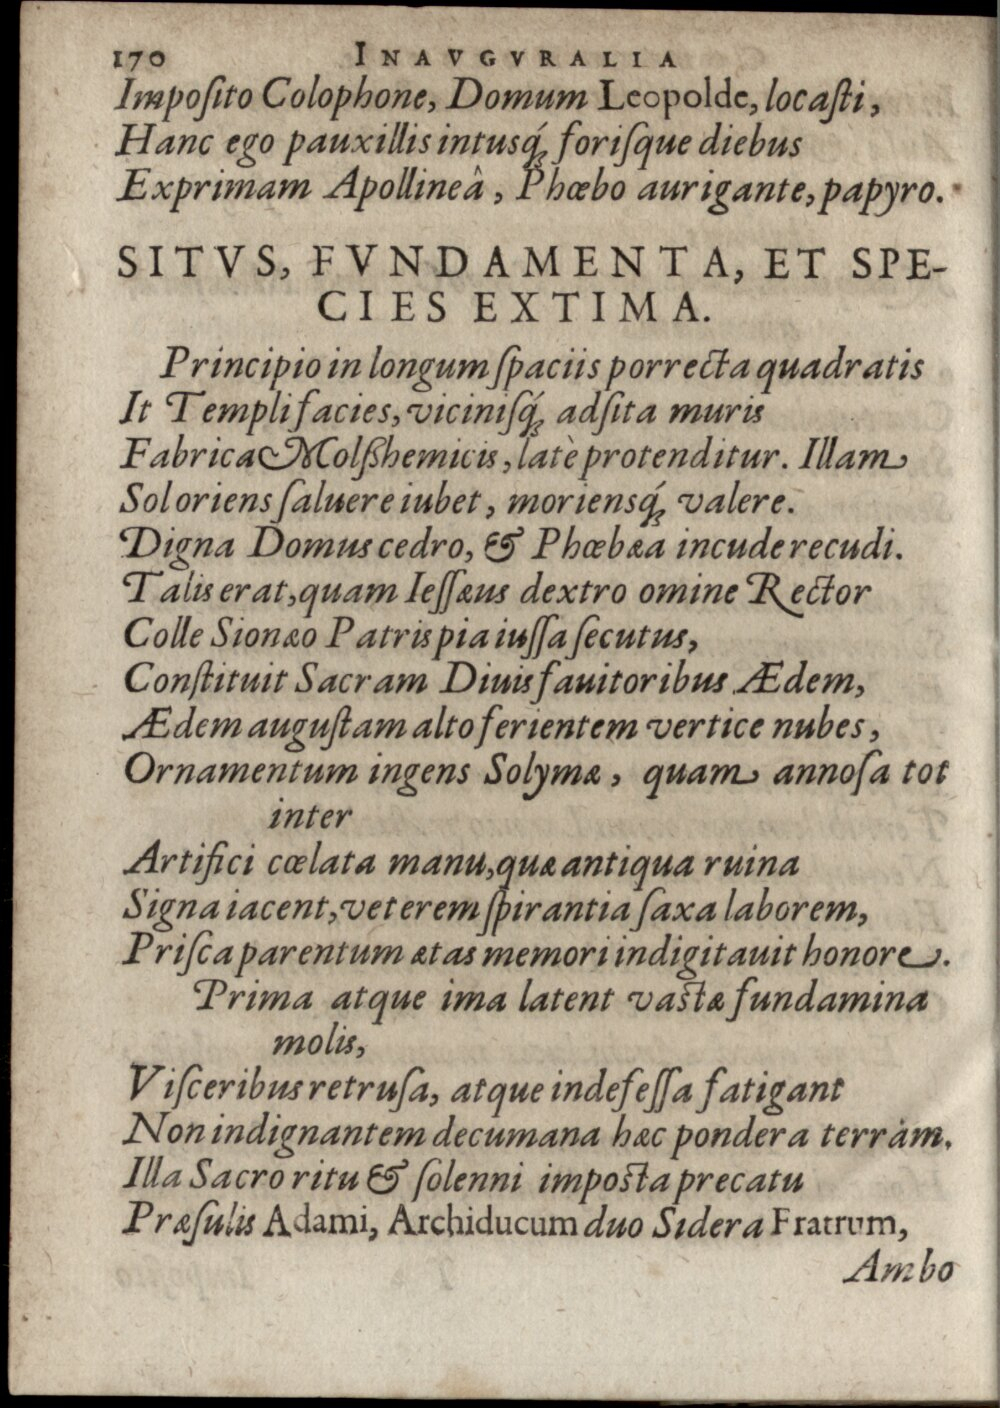 170 INAVGVRALIA
Impoſito Colophone, Domum Leopolde, locaſti,
Hanc ego pauxillis intusq́ꝫ foriſque diebus
Exprimam Apollineâ, Phœbo aurigante, papyro.
SITVS, FVNDAMENTA, ET SPE-
CIES EXTIMA.
Principio in longum ſpaciis porrecta quadratis
It Templi facies, viciniſq́ꝫ adſita muris
Fabrica Molßhemicis, latè protenditur. Illam
Sol oriens ſaluere iubet, moriensq́ꝫ valere.
Digna Domus cedro, & Phœbæa incude recudi.
Talis erat, quam Ieſſæus dextro omine Rector
Colle Sionæo Patris pia iuſſa ſecutus,
Conſtituit Sacram Diuis fauitoribus Ædem,
Ædem auguſtam alto ferientem vertice nubes,
Ornamentum ingens Solymæ, quam annoſa tot
inter
Artifici cœlata manu, quæ antiqua ruina
Signa iacent, veterem ſpirantia ſaxa laborem,
Priſca parentum ætas memori indigitauit honore.
Prima atque ima latent vastæ fundamina
molis,
Viſceribus retruſa, atque indefeſſa fatigant
Non indignantem decumana hæc pondera terràm.
Illa Sacro ritu & ſolenni imposta precatu
Præſulis Adami, Archiducum duo Sidera Fratrum,
Ambo